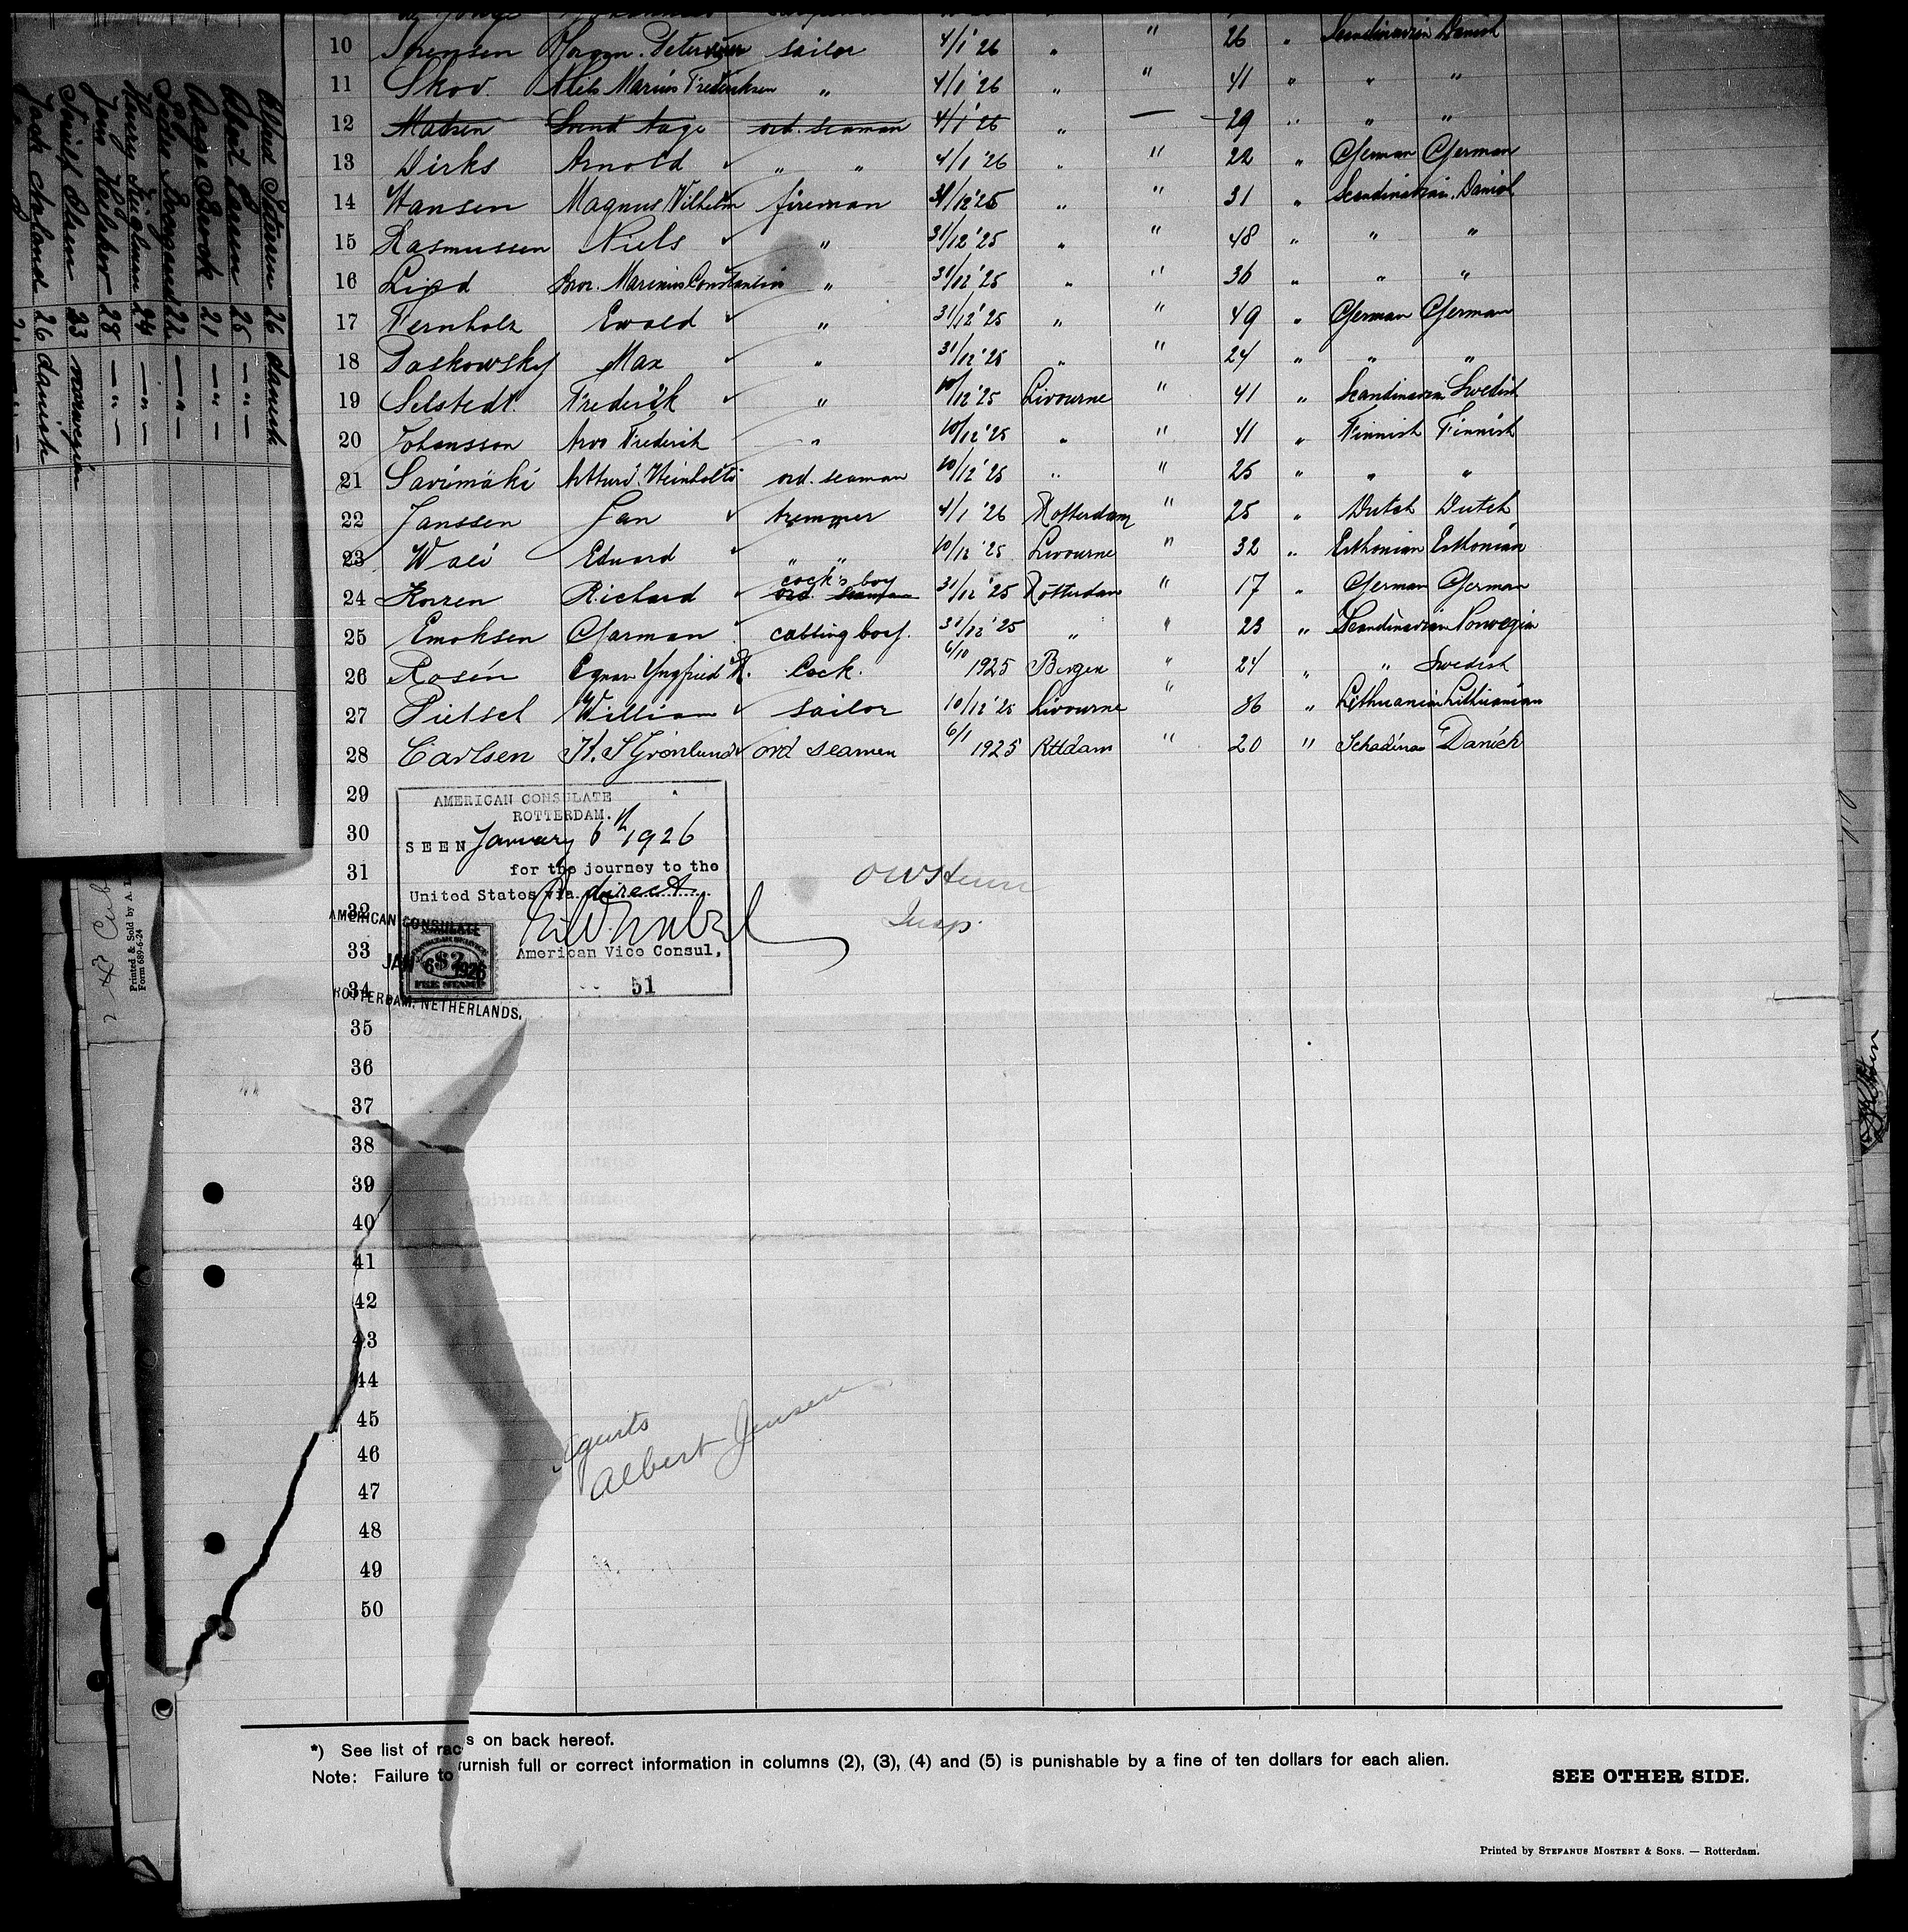 10 Sörensen sailor 4/1 '26 " " 26 " Scandinavian Danish
11 Skov Niels Marius Frederiksen " 4/1 '26 " " 41 " " "
12 Madsen Svend Aage ord. seaman 4/1 '26 " — 29 " " "
13 Dirks Arnold " " 4/1 '26 " " 22 " German German
14 Hansen Magnus Wilhelm fireman 31/12 '25 " " 31 " Scandinavian Danish
15 Rasmussen Niels " 31/12 '25 " " 48 " " "
16 Marinius Constantin " 31/12 '25 " " 36 " " "
17 Fernholz Ewald " 31/12 '25 " " 49 " German German
18 Paskowsky Max " 31/12 '25 " " 24 " " "
19 Selstedt Frederik " 10/12 '25 Livourne " 41 " Scandinavian Swedish
20 Johansson Arvo Frederik " 10/12 '25 " " 41 " Finnish Finnish
21 Savimäki ord. seaman 10/12 '25 " " 25 " " "
22 Janssen Jan tremmer 4/1 '26 Rotterdam " 25 " Dutch Dutch
23 Wali Eduard " " 10/12 '25 Livourne " 32 " Esthonian Esthonian
24 Korzen Richard cock's boy ord. seaman 31/12 '25 Rotterdam " 17 " German German
25 Emoksen Garman cabbing boy. 31/12 '25 " " 23 " Scandinavian Norwegian
26 Rosén Yngfried Cock. 6/10 1925 Bergen " 24 " " Swedish
27 Pietsch William sailor 10/12 '25 Livourne " 36 " Lithuanian Lithuanian
28 Carlsen K. S Grönlund ord seamen 6/1 1925 Rttdam " 20 " Schadinav Danich
29
30
31
32
33
34
35
36
37
38
39
40
41
42
43
44
45
46
47
48
49
50
AMERICAN CONSULATE
ROTTERDAM.
SEEN January 6th 1926
for the journey to the
United States via direct
American Vice Consul,
51
AMERICAN CONSULATE
JAN 6 - 1926
$2
FEE STAMP
ROTTERDAM, NETHERLANDS.
Insp.
Agents
Albert Jensen
*) See list of races on back hereof.
Note: Failure to furnish full or correct information in columns (2), (3), (4) and (5) is punishable by a fine of ten dollars for each alien.
SEE OTHER SIDE.
Printed by STEFANUS MOSTERT & SONS. — Rotterdam.
Alfred 26 danish
25 — " —
Aage 21 — " —
22 — " —
24 — " —
Jens 28 — " —
Olsen 23 norwegian
Jack 26 danish
Printed & Sold by A.
Form 689-6-24